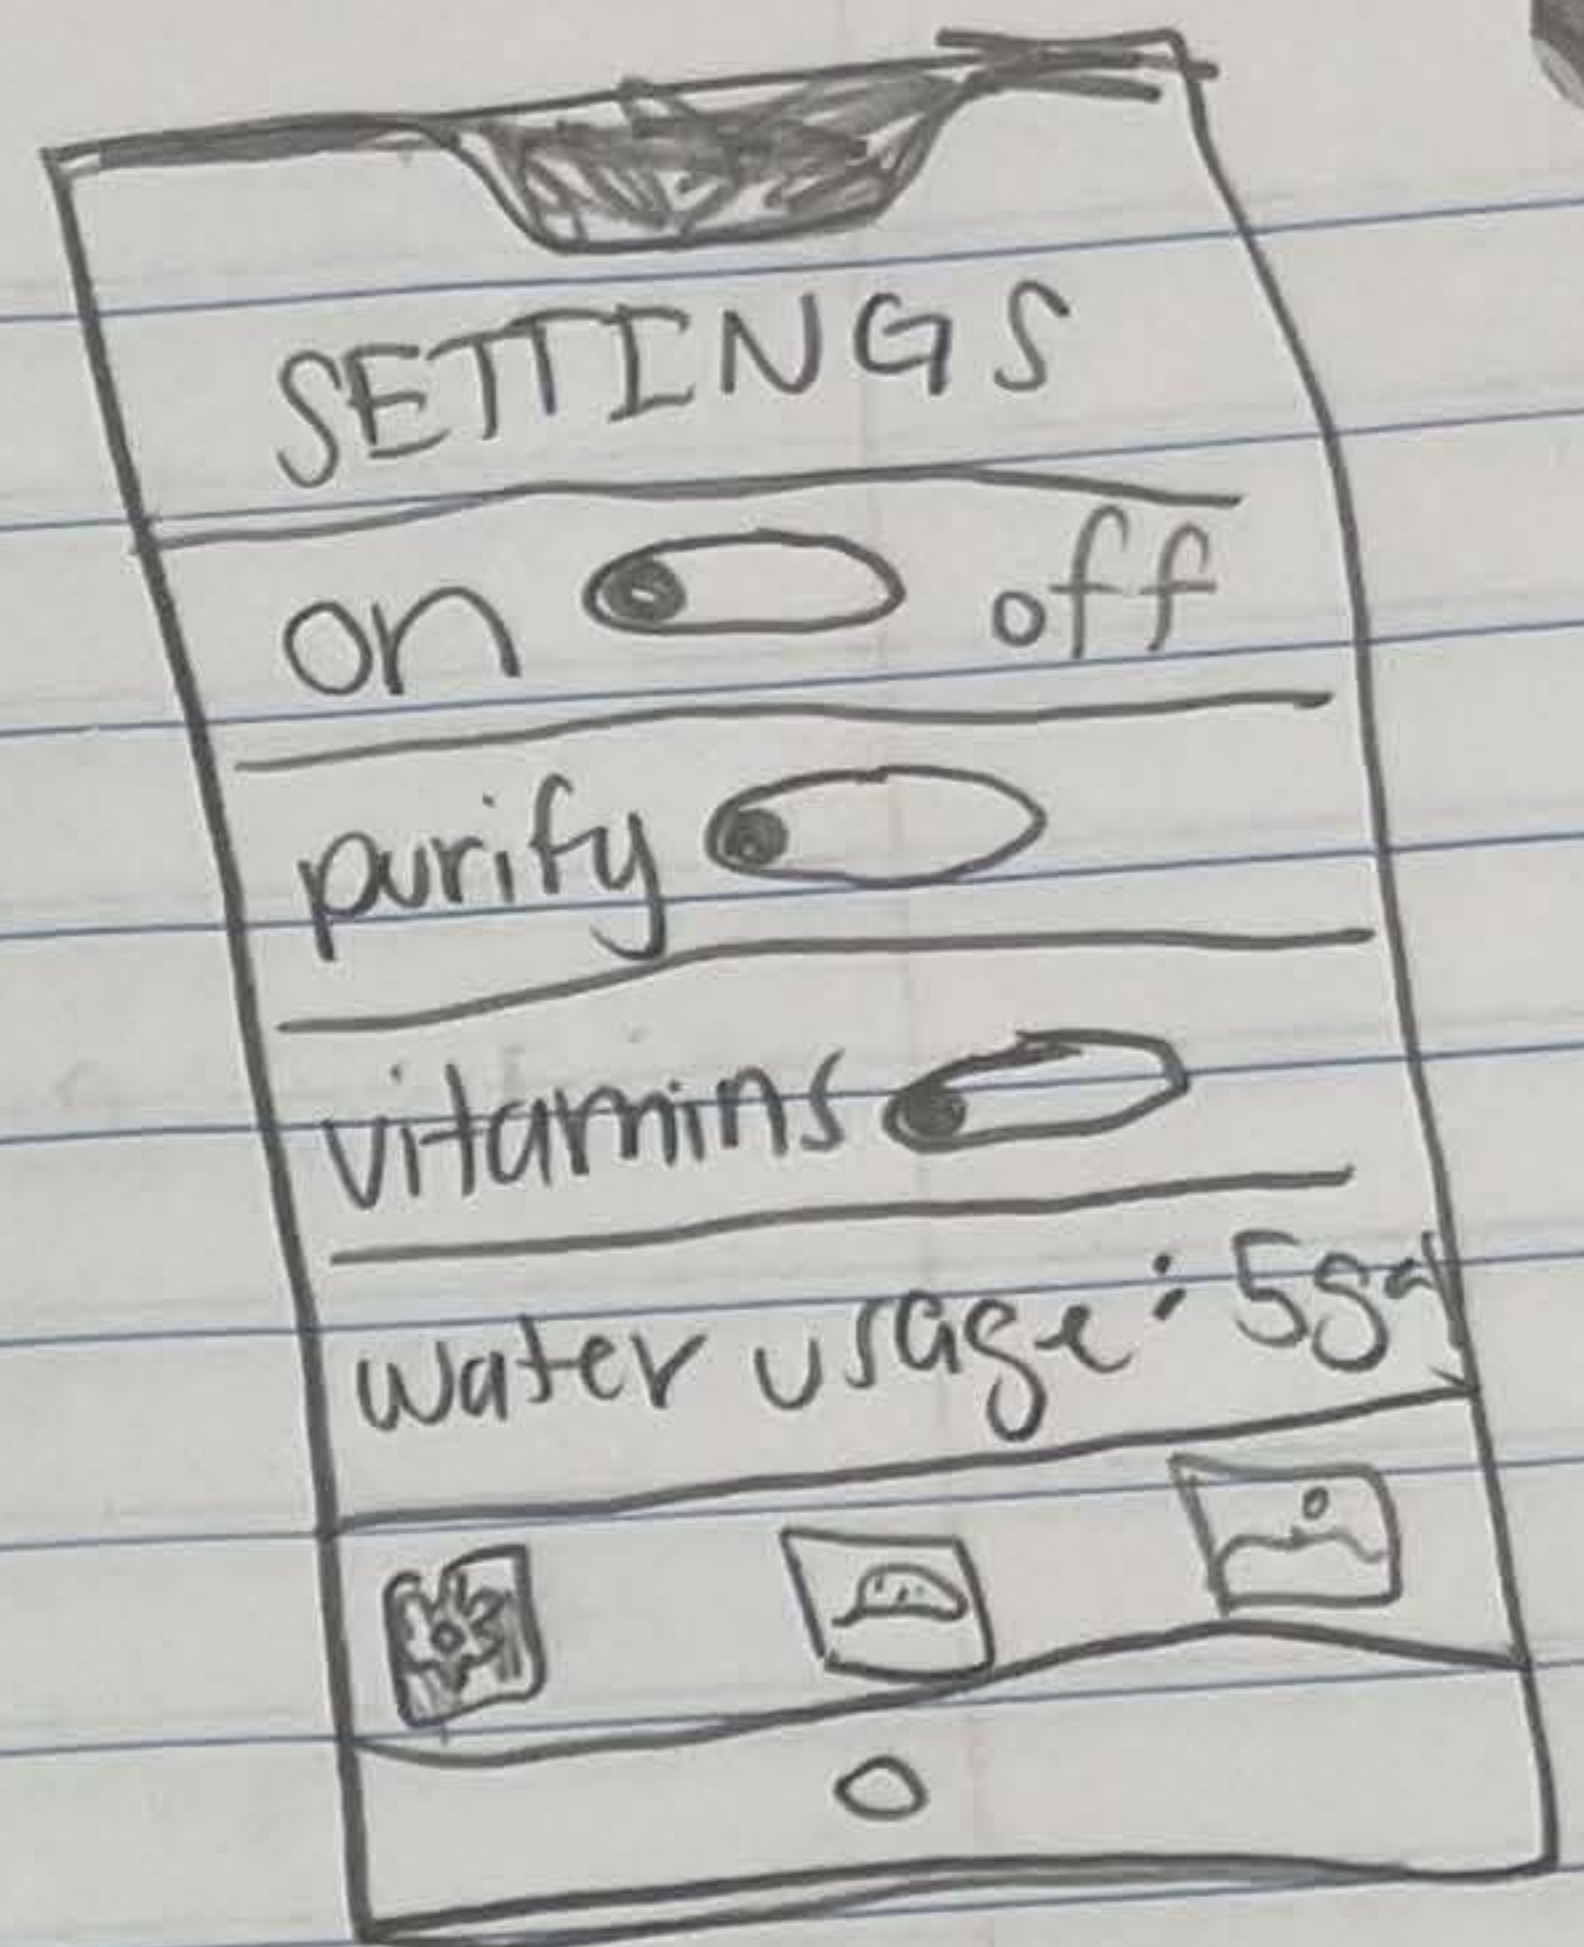 SETTINGS
on off
purify
vitamins
water usage: 5gal